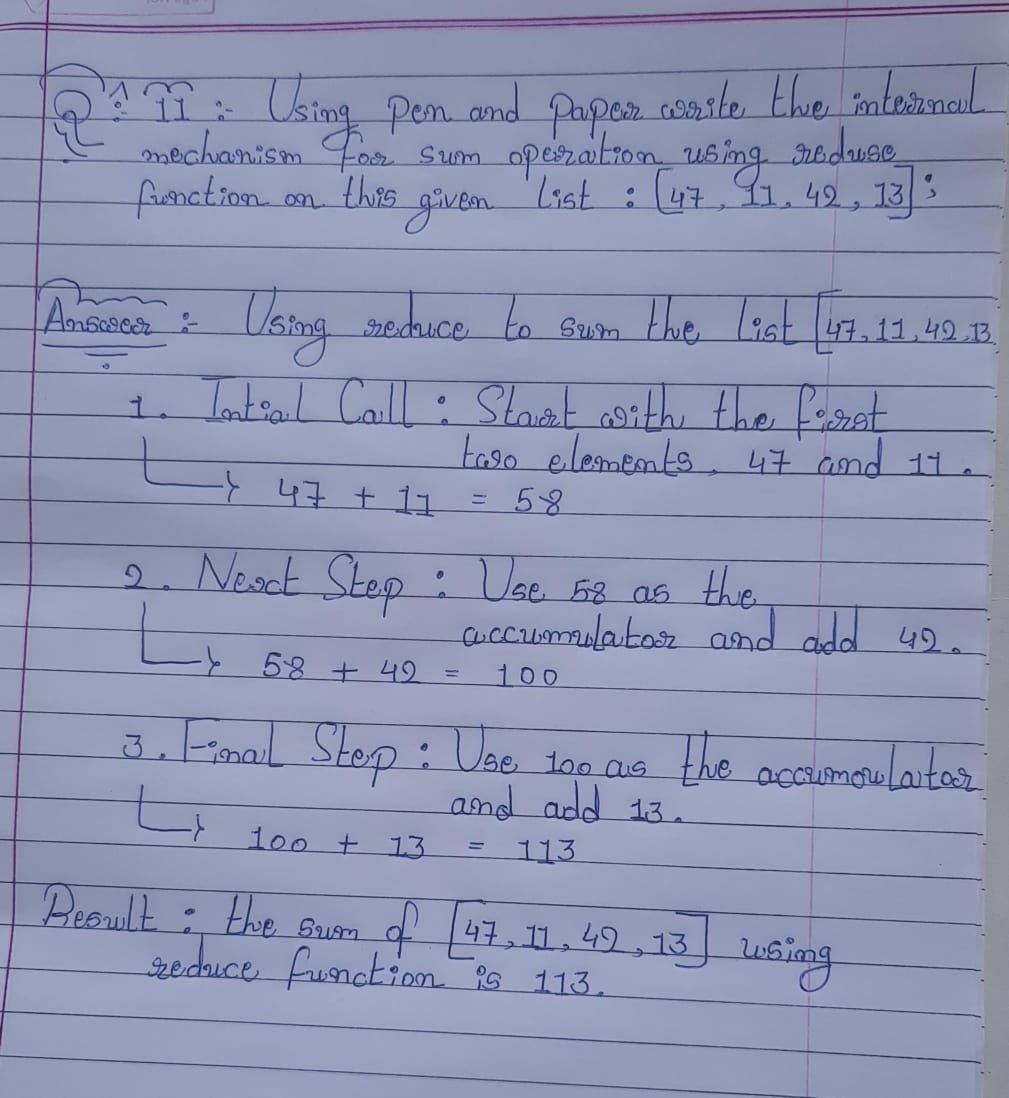 Q: 11 :- Using Pen and Paper write the internal
mechanism for sum operation using reduse
function on this given list : [47, 11, 42, 13];
Answer :- Using reduce to sum the list [47, 11, 42, 13
1. Intial Call : Start with the first
two elements, 47 and 11.
47 + 11 = 58
2. Next Step : Use 58 as the
accumulator and add 42.
58 + 42 = 100
3. Final Step : Use 100 as the accumoulator
and add 13.
100 + 13 = 113
Result : the sum of [47, 11, 42, 13] using
reduce function is 113.